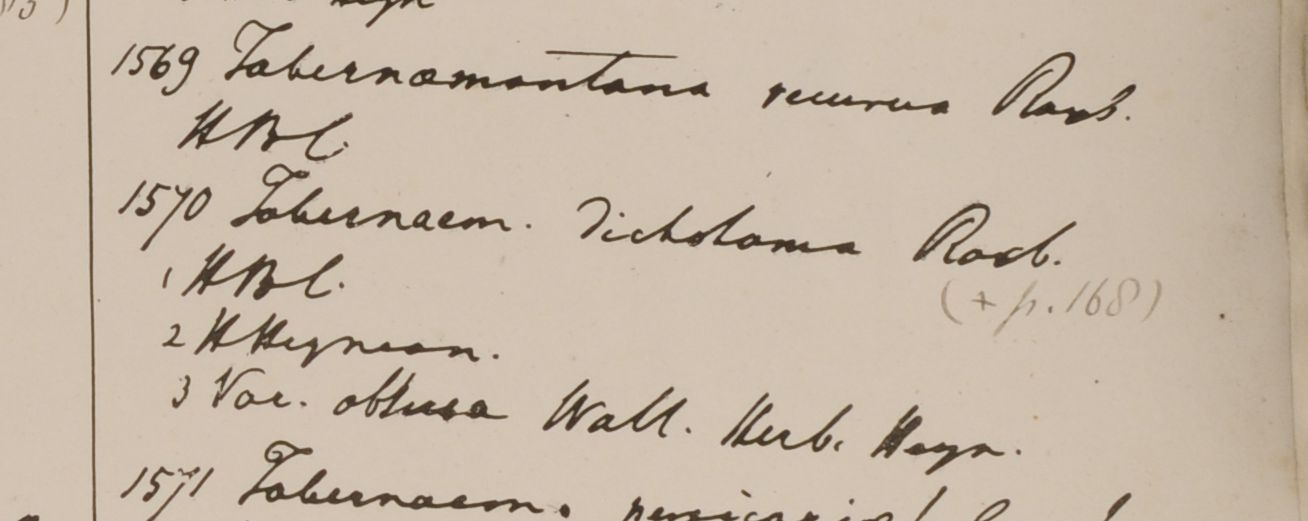 1569 Tabernæmontana recurva Roxb.
HBC.
1570 Tabernaem. dichotoma Roxb.
1 HBC.
(+ p. 168)
2 HHeynean.
3 Var. obtusa Wall. Herb. Heyn.
1571 Tabernaem.